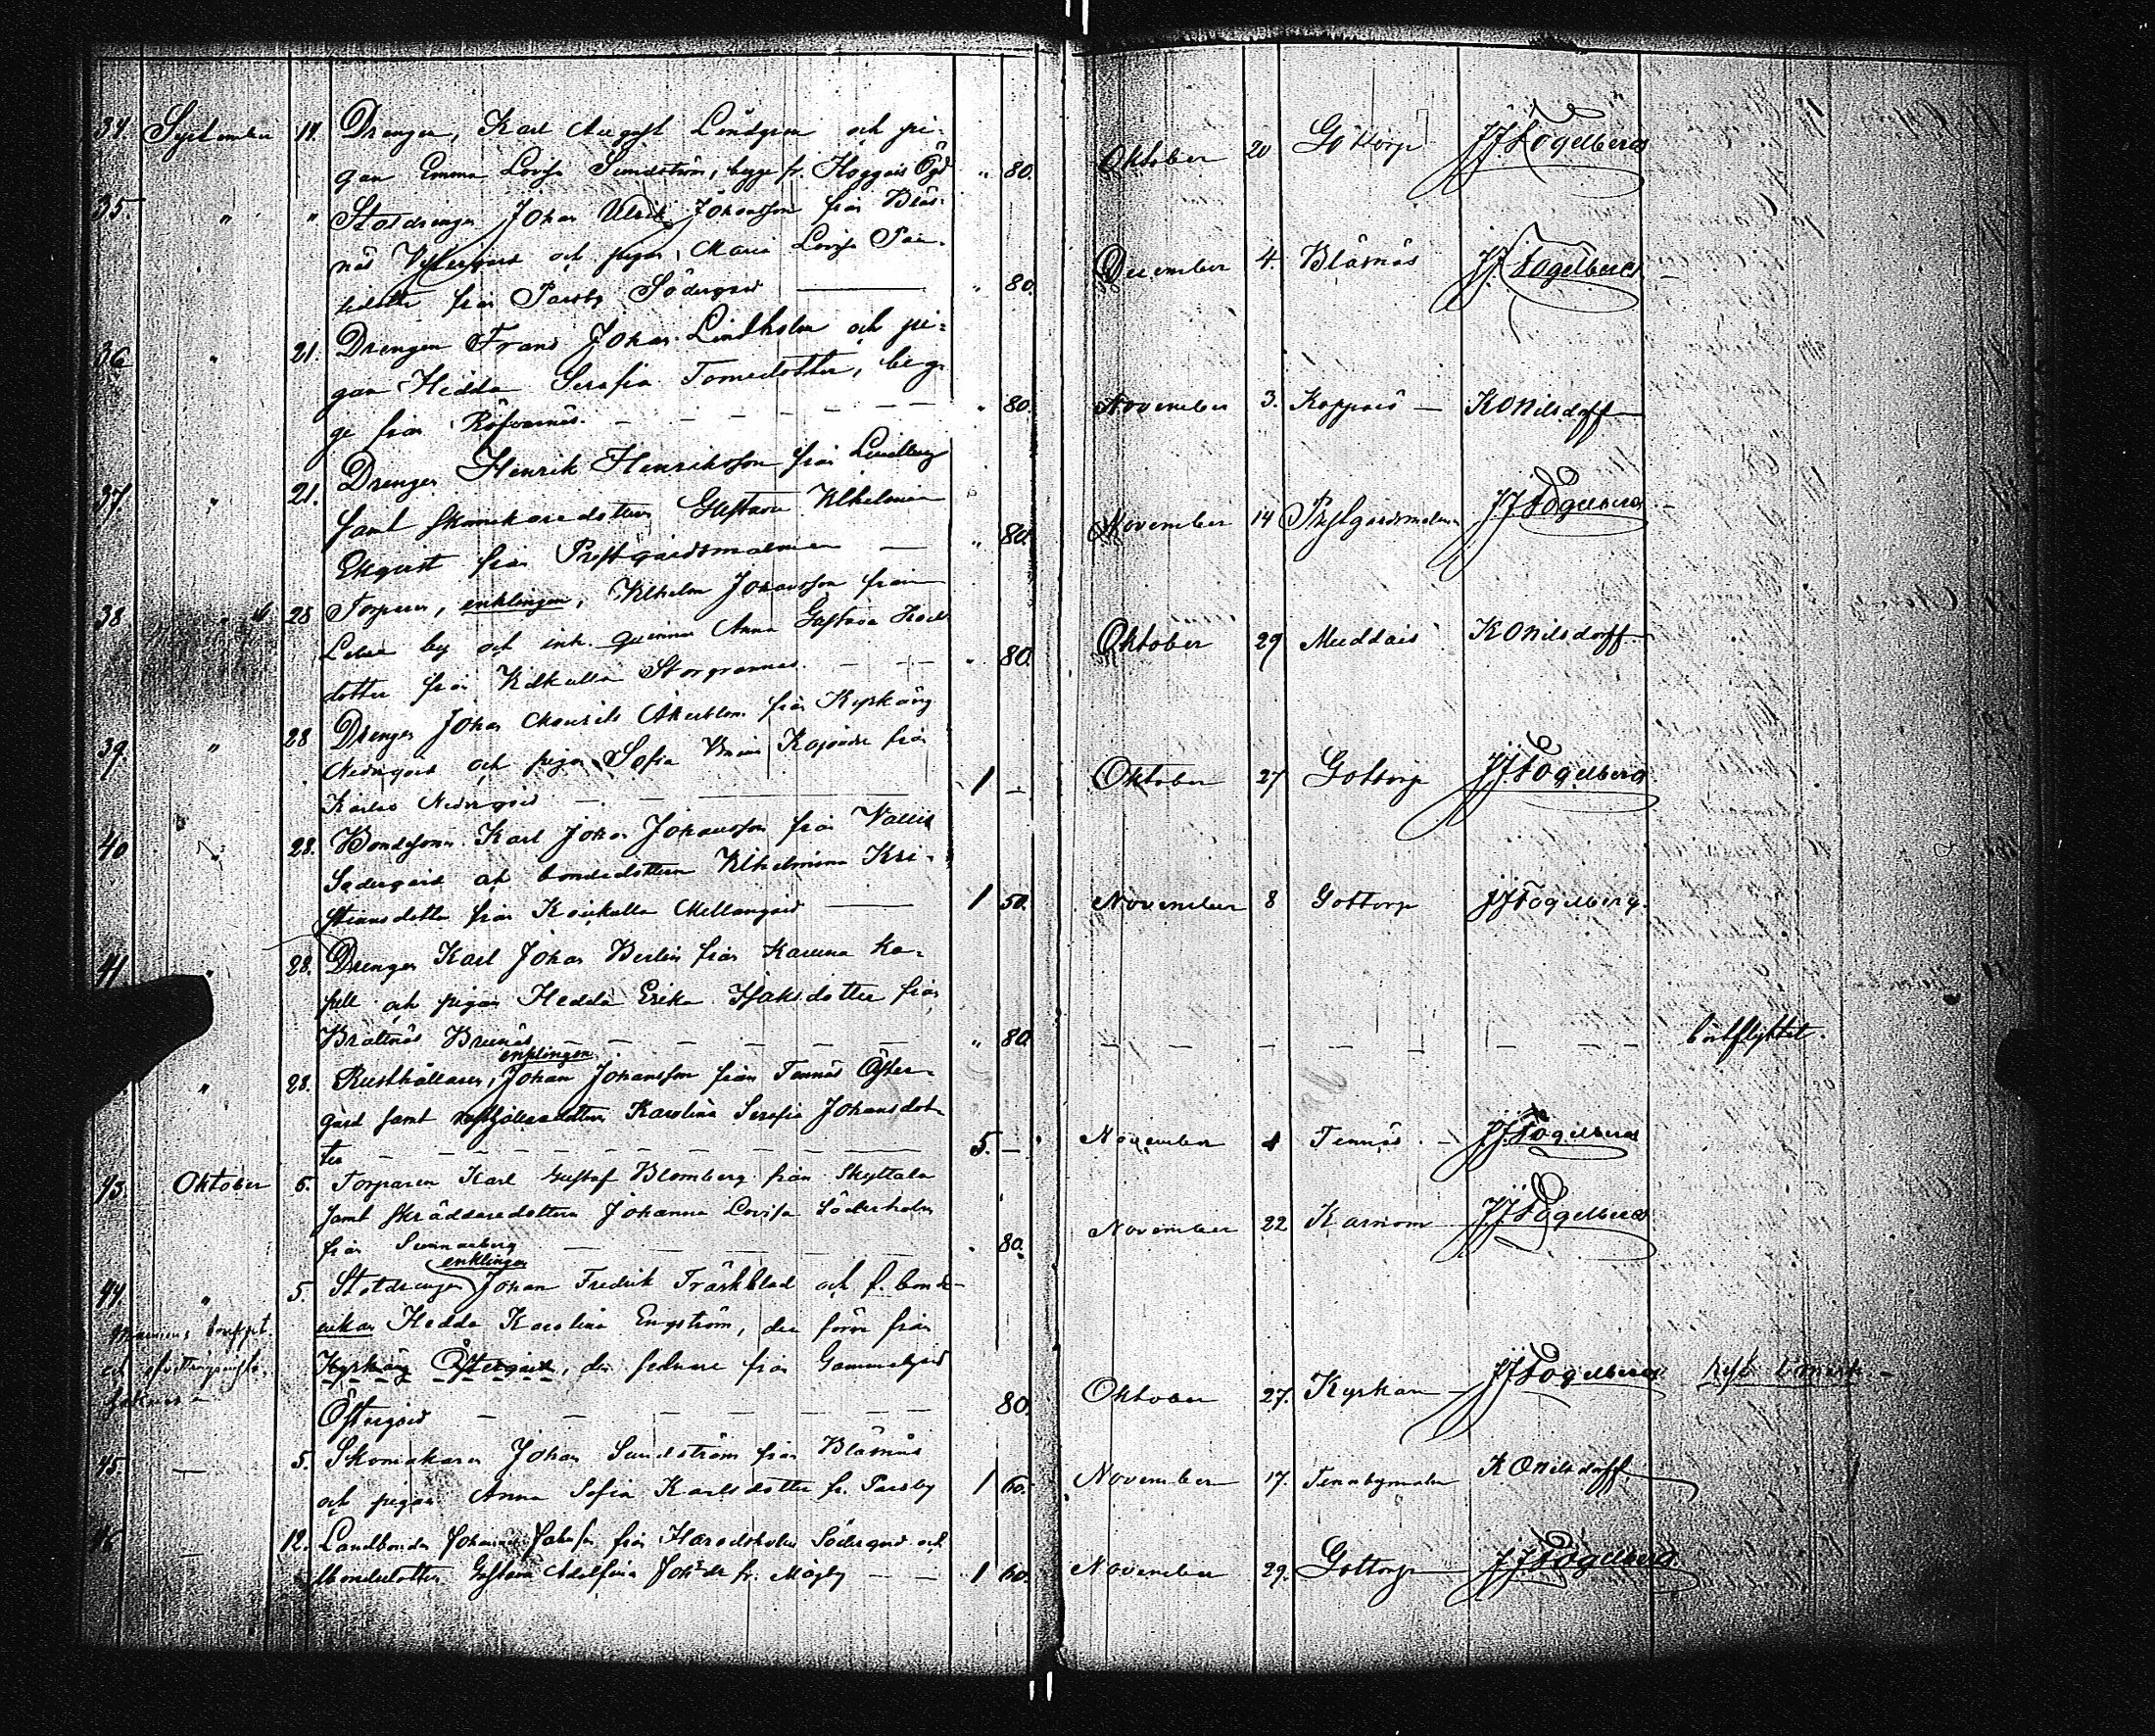 34. September 14. Drengen, Karl August Lindgren och pi-
gan Emma Lovisa Sundström, begge fr. Koggais Ögd " 80. Oktober 20 Gottorp JJFogelberg
35. " " Stosdrengen Johan Ulrik Johansson från Bläs-
näs Vestergård och pigan Maria Lovisa
från Parsby Södergård " 80. December 4. Bläsnäs JJFogelberg
36 " 21. Drengen Frans Johan Lindholm och pi-
gan Hedda Serafia Tomedotter, beg-
ge från Röfvarnäs. " 80. November 3. Koppais KONilsdorff
37 " 21. Drengen Henrik Henriksson från Lindberg
samt skomakaredottern Gustava Vilhelmina
Ekqvist från Prestgårdsmalmen " 80. November 14 Prestgårdsmalmen JJFogelberg
38 " 28 Torparen, enklingen, Vilhelm Johansson från
by och inh. qvinnan Anna Gustava
dotter från Kilkulla Storgrannas " 80. Oktober 29 Muddais KONilsdorff
39. " 28 Drengen Johan Maurits Åkerblom från Kyrkäng
Nedergård och pigan Sofia Kajander från
Karlas Nedergård 1 — Oktober 27 Gottorp JJFogelberg
40 " 28. Bondesonen Karl Johan Johansson från Vallis
Södergård och bondedottern Vilhelmina Kri-
stiansdotter från Koikulla Mellangård 1 50. November 8 Gottorp JJFogelberg.
41 " 28. Drengen Karl Johan Berlin från Karuna ka-
pell och pigan Hedda Erika Isaksdotter från
Brattnäs " 80 bortflyttat.
enklingen
" 28. Rusthållaren, Johan Johansson från Tennäs Öster-
gård samt rusthållaredottern Karolina Serafia Johansdot-
ter 5. — November 4 Tennäs JJFogelberg
43. Oktober 5. Torparen Karl Gustaf Blomberg från Skyttala
samt skräddaredottern Johanna Lovisa Söderholm
från Sunnanberg " 80. November 22 Karnom JJFogelberg
enklingen
44. " 5. Stotdrengen Johan Fredrik Träskblad och f. bonde-
enkan Hedda Karolina Engström, den förre från
Kyrkäng Östergård, den sednare från Gammelgård
Östergård 80. Oktober 27. Kyrkan JJFogelberg
45. — 5. Skomakaren Johan Sundström från Bläsnäs
och pigan Anna Sofia Karlsdotter fr. Parsby 1 60. November 17. Tennbymalm KONilsdorff
46 — 12. Landbonden från Haradsholm Södergård och
bondedottern Gustava Adolfina fr. Mågby 1 60. November 29. Gottorp JJFogelberg